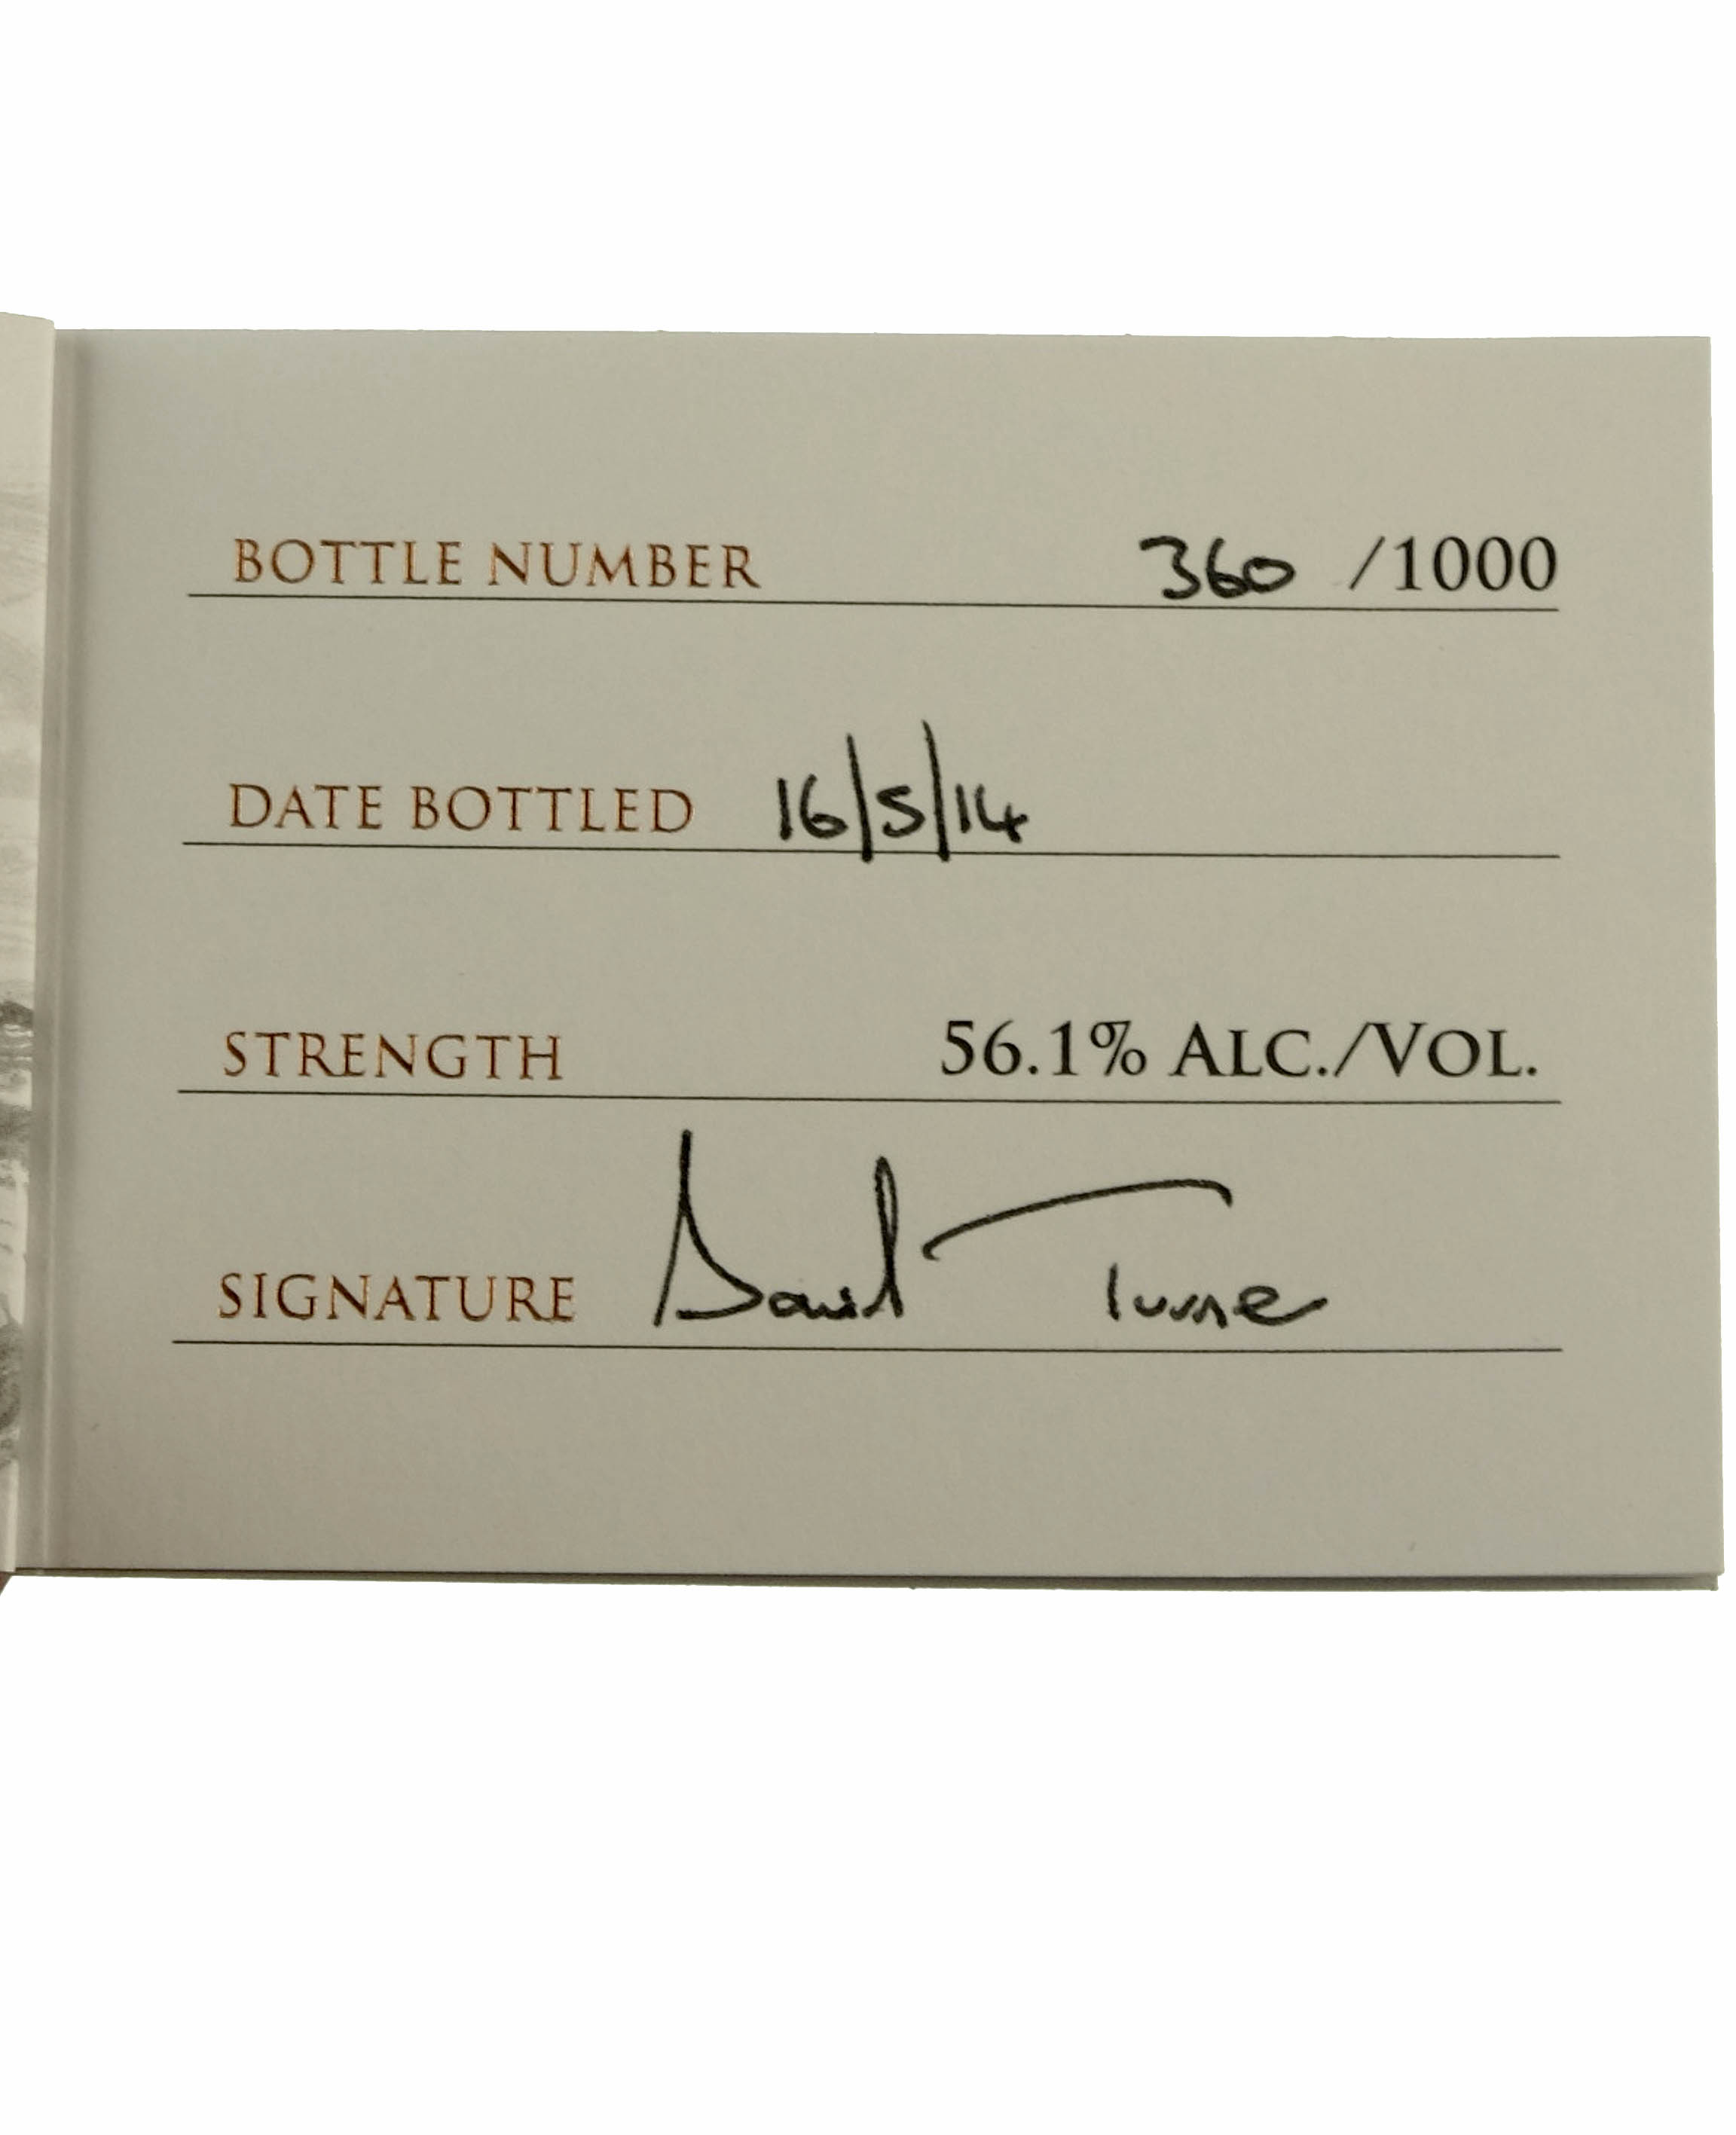 BOTTLE NUMBER 360 /1000
DATE BOTTLED 16/5/14
STRENGTH 56.1% ALC./VOL.
SIGNATURE David Turner